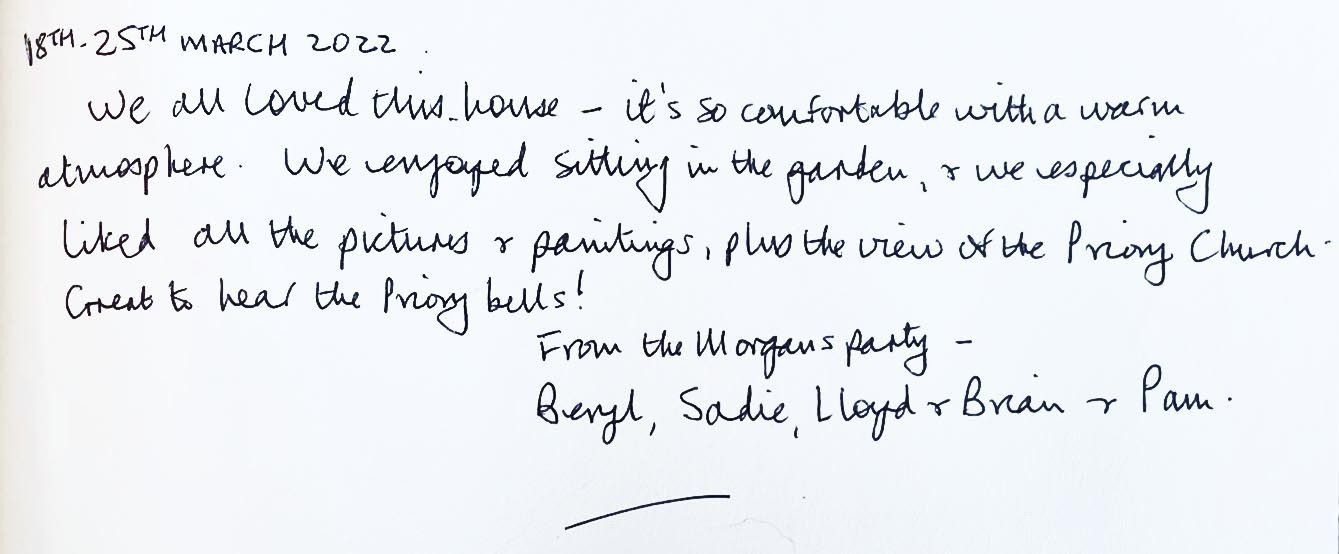 18TH-25TH MARCH 2022.
We all loved this house - it's so comfortable with a warm
atmosphere. We enjoyed sitting in the garden, & we especially
liked all the pictures & paintings, plus the view of the Priory Church-
Great to hear the Priory bells!
From the Morgans party -
Beryl, Sadie, Lloyd & Brian & Pam.